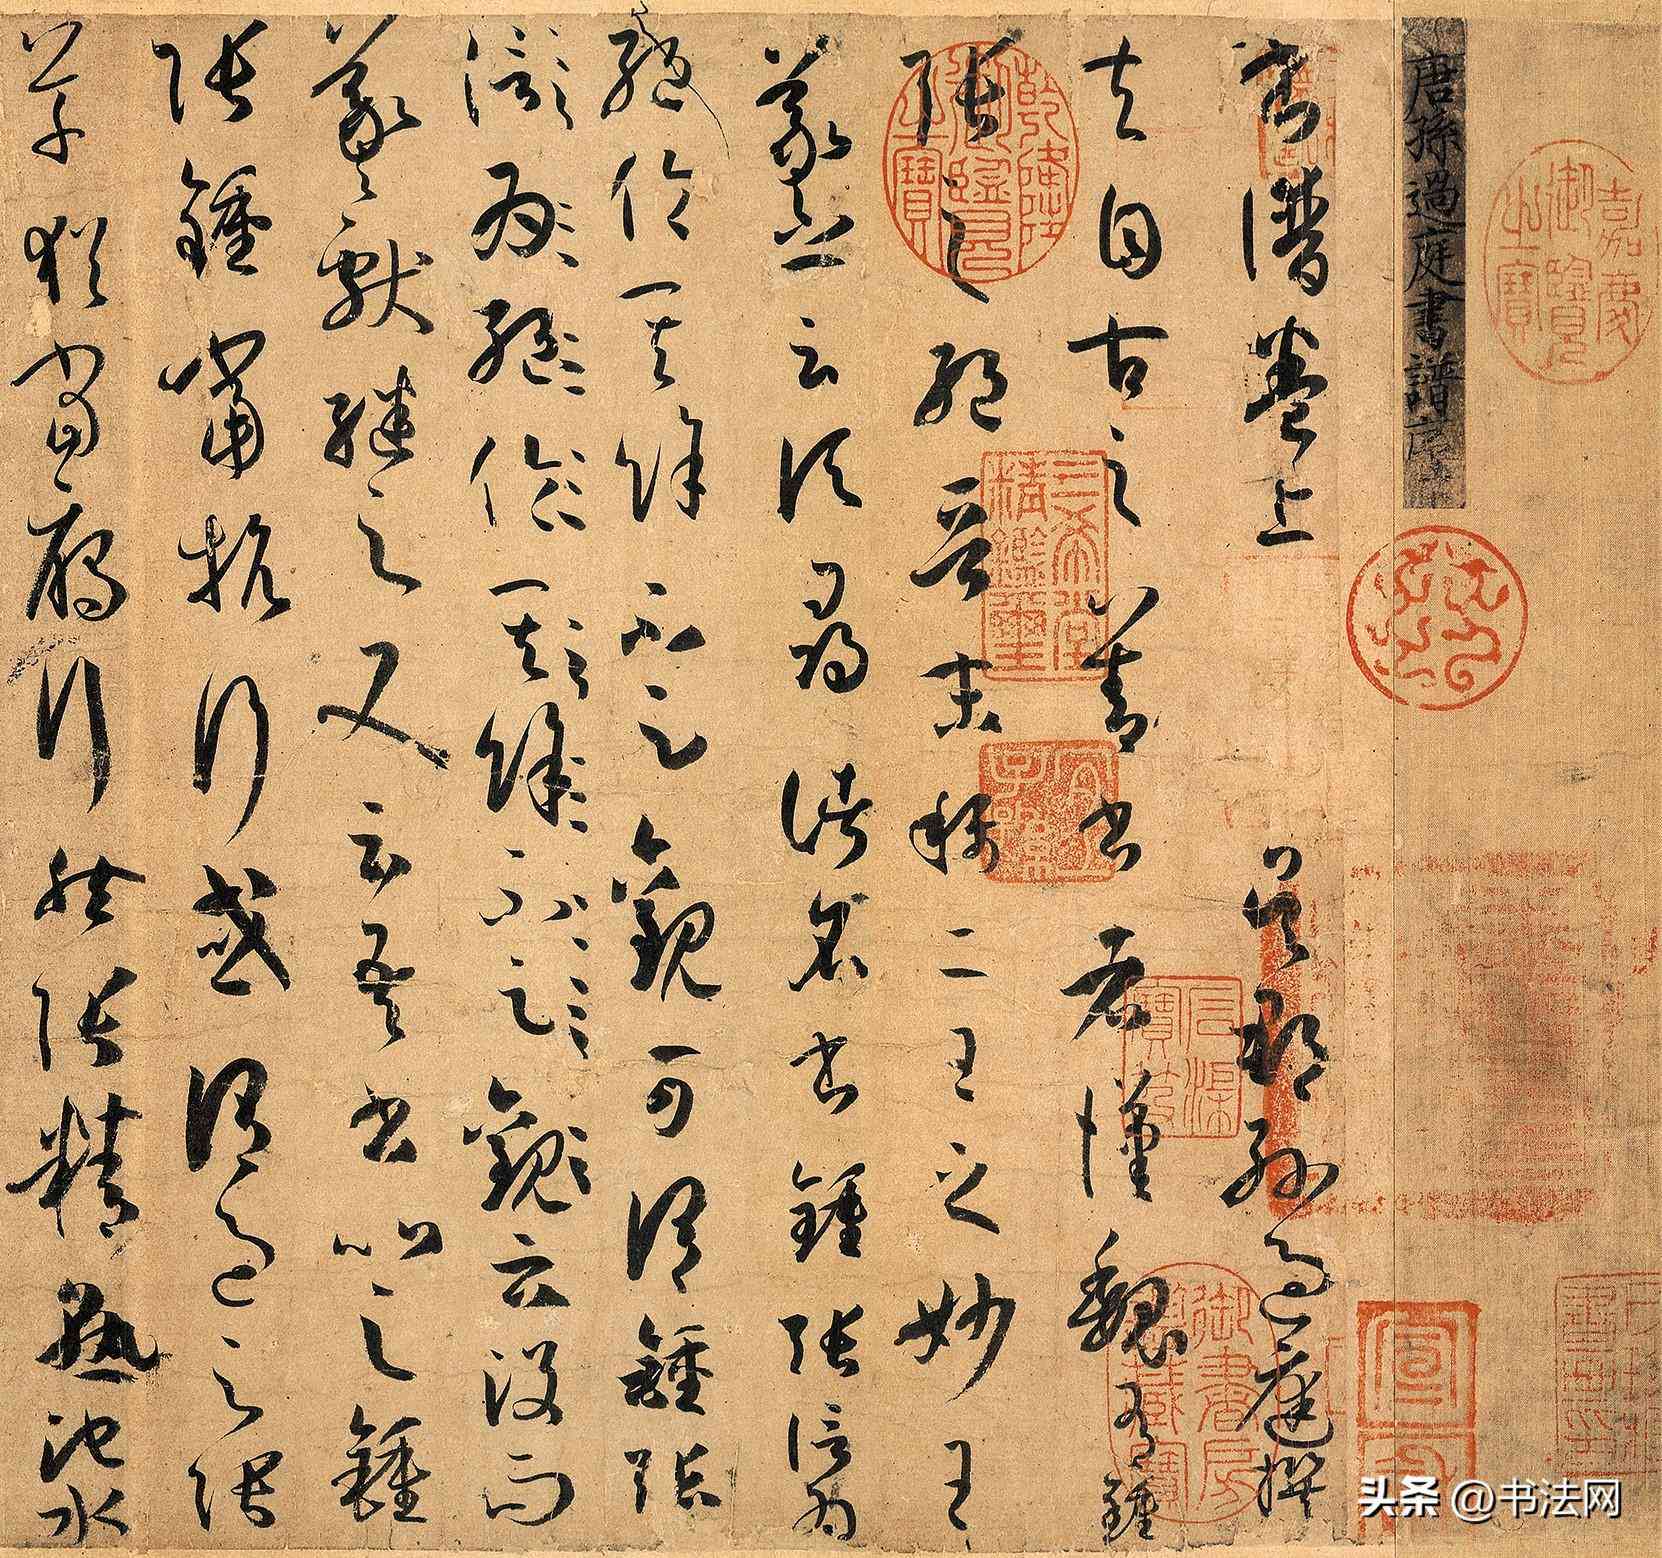 嘉慶御覽之寶
唐孫過庭書譜序
書譜卷上 吳郡孫過庭撰
夫自古之善書者漢魏有鍾
張之絕晉末稱二王之妙王
羲之云頃尋諸名書鍾張信為
絕倫其餘不足觀可謂鍾張
信為絕倫其餘不足觀云沒而
羲獻繼之又云吾書比之鍾
張鍾當抗行或謂過之張
草猶當雁行然張精熟池水
乾隆御覽之寶
三希堂精鑑璽
宜子孫
石渠寶笈
头条 @书法网